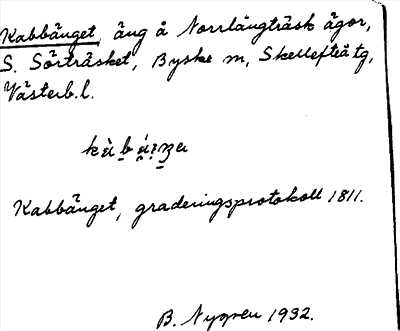 Kabbänget, äng å Norrlångträsk ägor,
S. Sörträsket, Byske sn, Skellefteå tg,
Västerb. l.
Kabbänget, graderingsprotokoll 1811.
B. Nygren 1932.